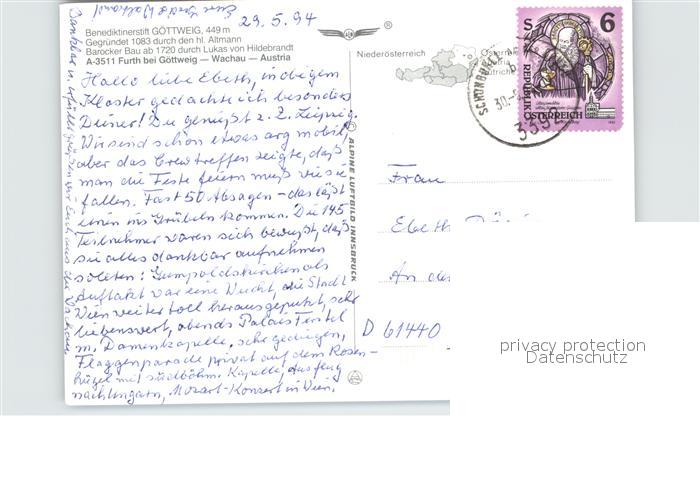 29.5.94
Benediktinerstift GÖTTWEIG, 449 m
Gegründet 1083 durch den hl. Altmann
Barocker Bau ab 1720 durch Lukas von Hildebrandt
A-3511 Furth bei Göttweig — Wachau — Austria
Hallo liebe Ebeth, in obigem
Kloster gedachte ich besonders
Deiner! Du genießt z. Z. Leipzig.
Wir send schon etwas arg mobil,
aber das Crewtreffen zeigte, daß
man die Feste feiern muß wie sie
fallen. Fast 50 Absagen - das läßt
einen ins Grübeln kommen. Die 145
Teilnehmer waren sich bewußt, daß
sie alles dankbar aufnehmen
sollten: Gumpoldskirchen als
Auftakt war eine Wucht, die Stadt
Wien weiter toll herausgeputzt, sehr
liebenswert, abends Palais Ferstel
m. Damenkapelle, sehr gediegen,
Flaggenparade privat auf dem Rosen-
hügel mit südböhm. Kapelle, Ausflug
nach Ungarn, Mozart-Konzert in Wien.
ALPINE LUFTBILD INNSBRUCK
®
Niederösterreich
S 6
REPUBLIK
ÖSTERREICH
30.
3392
Frau
Ebeth
An de
D 61440
privacy protection
Datenschutz